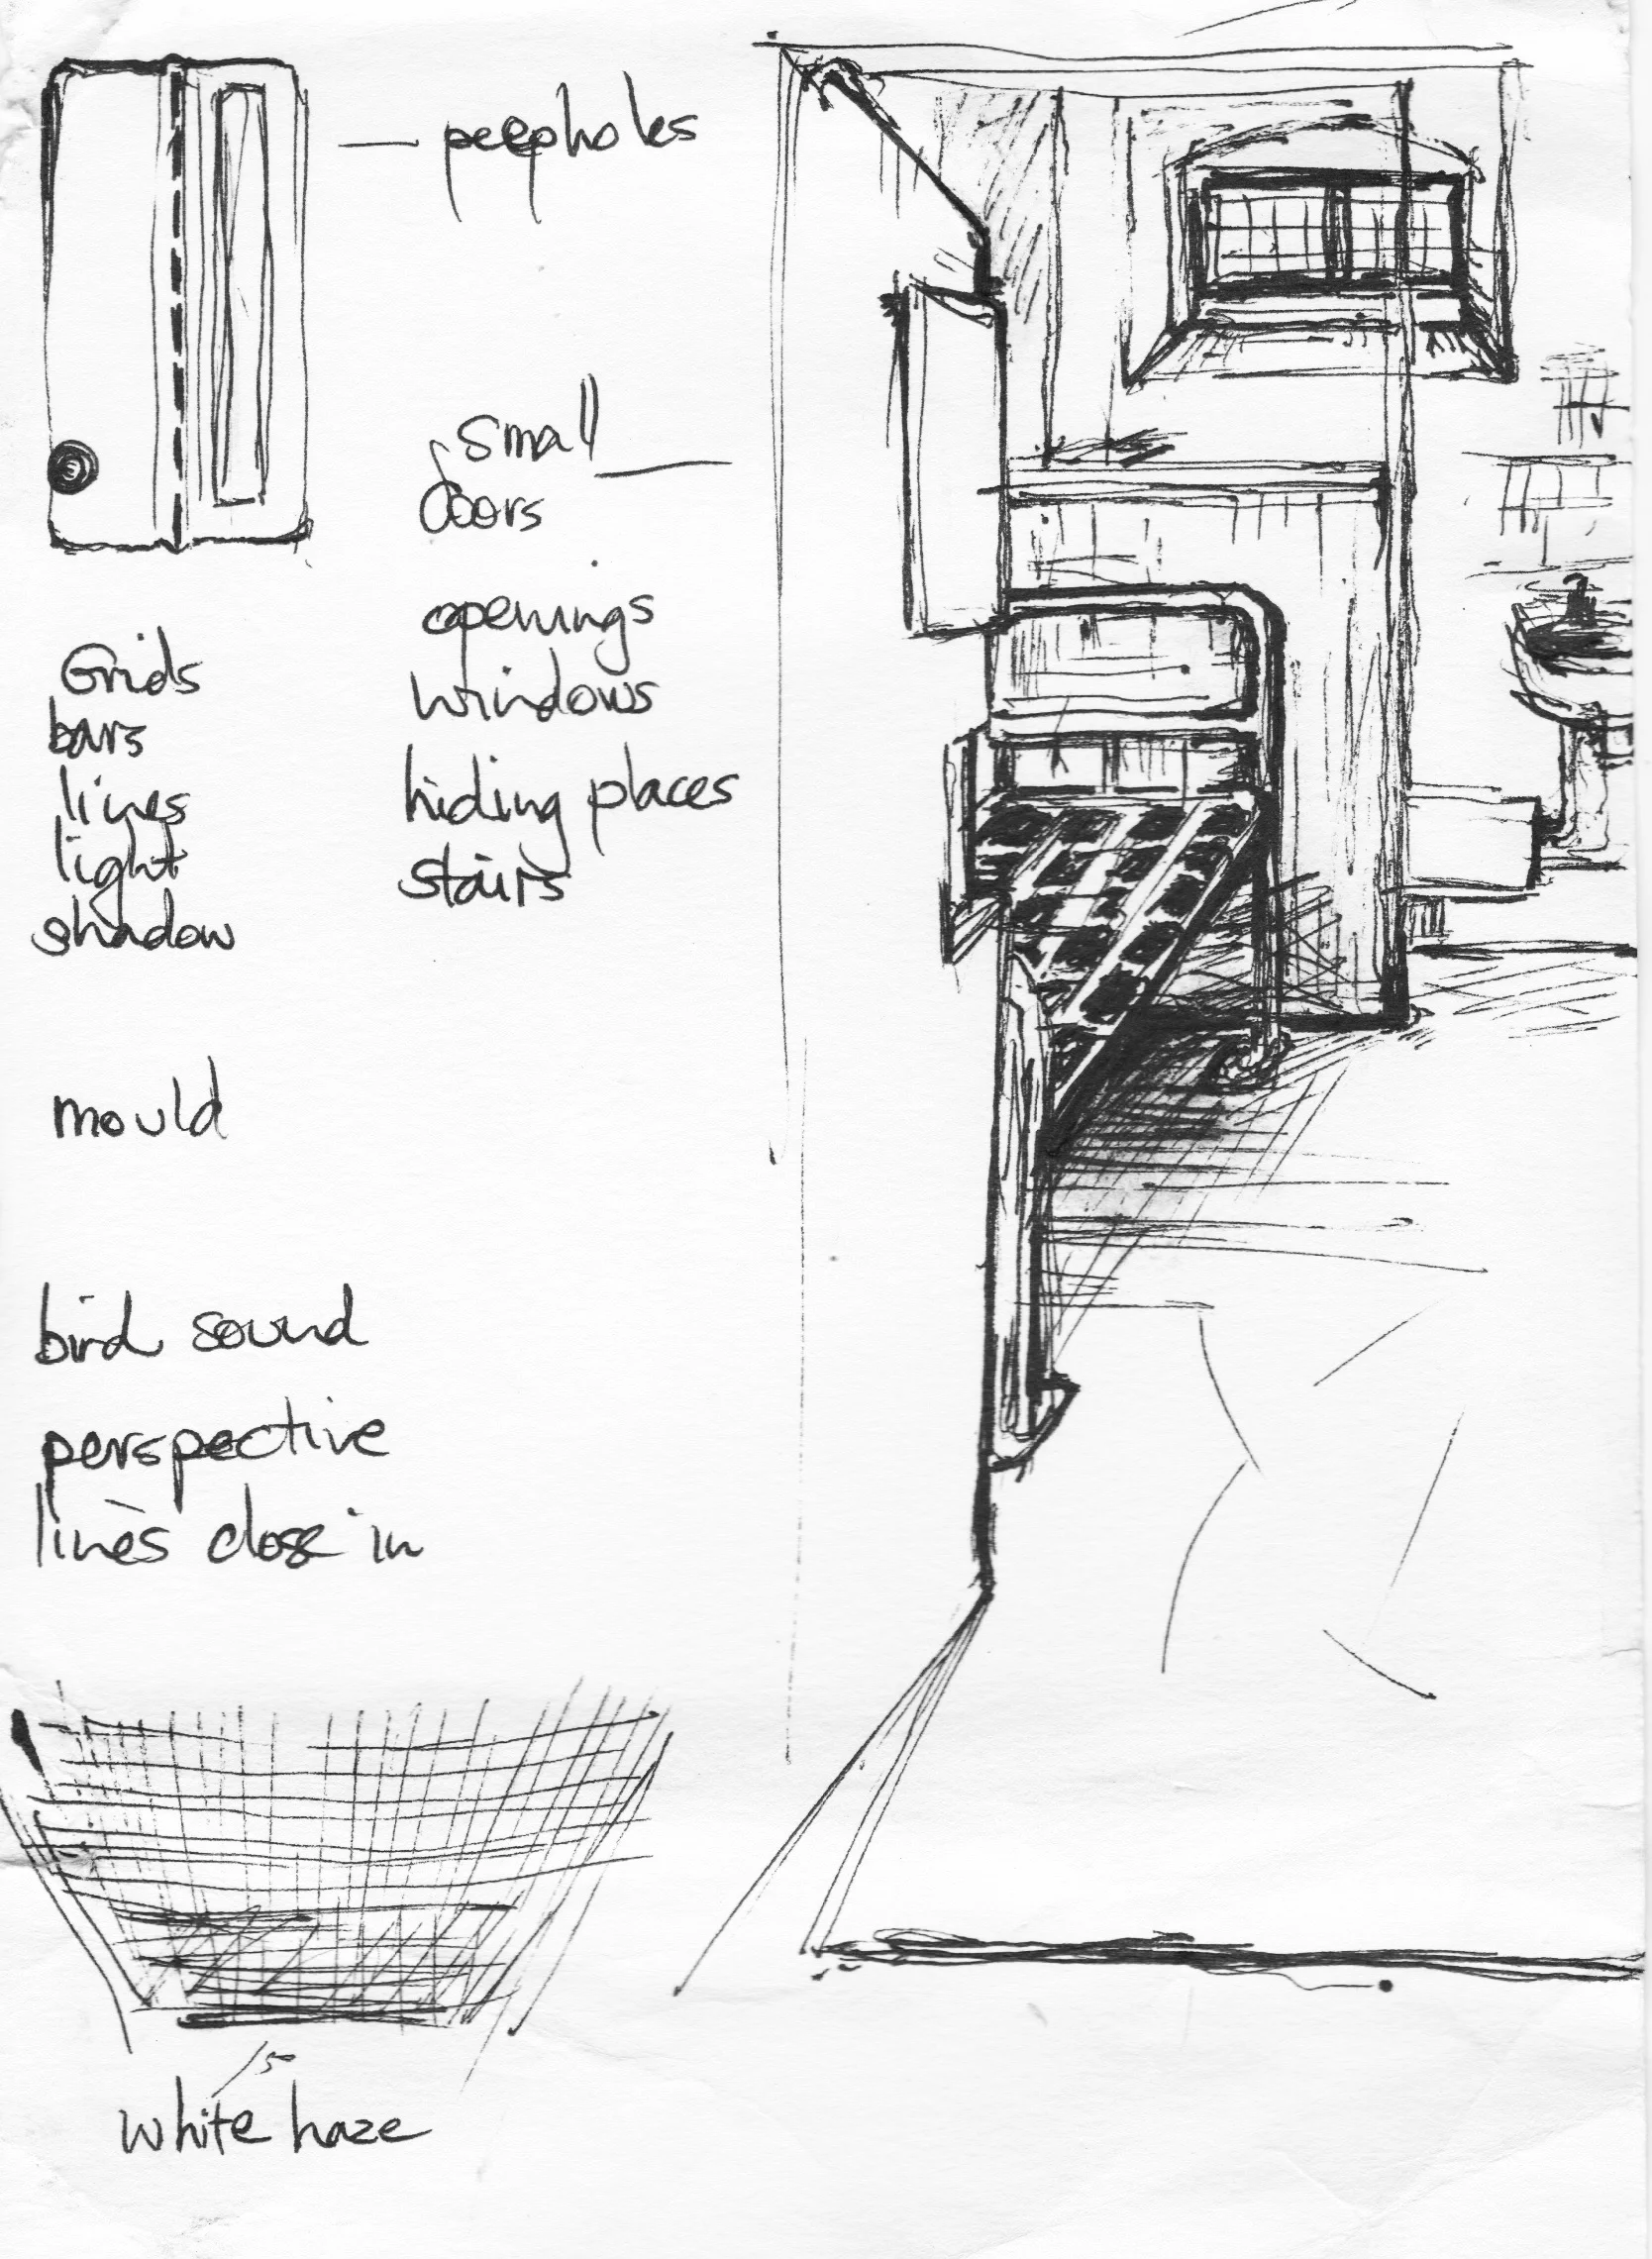 peepholes
small
doors
openings
windows
hiding places
stairs
Grids
bars
lines
light
shadow
mould
bird sound
perspective
lines close in
white haze